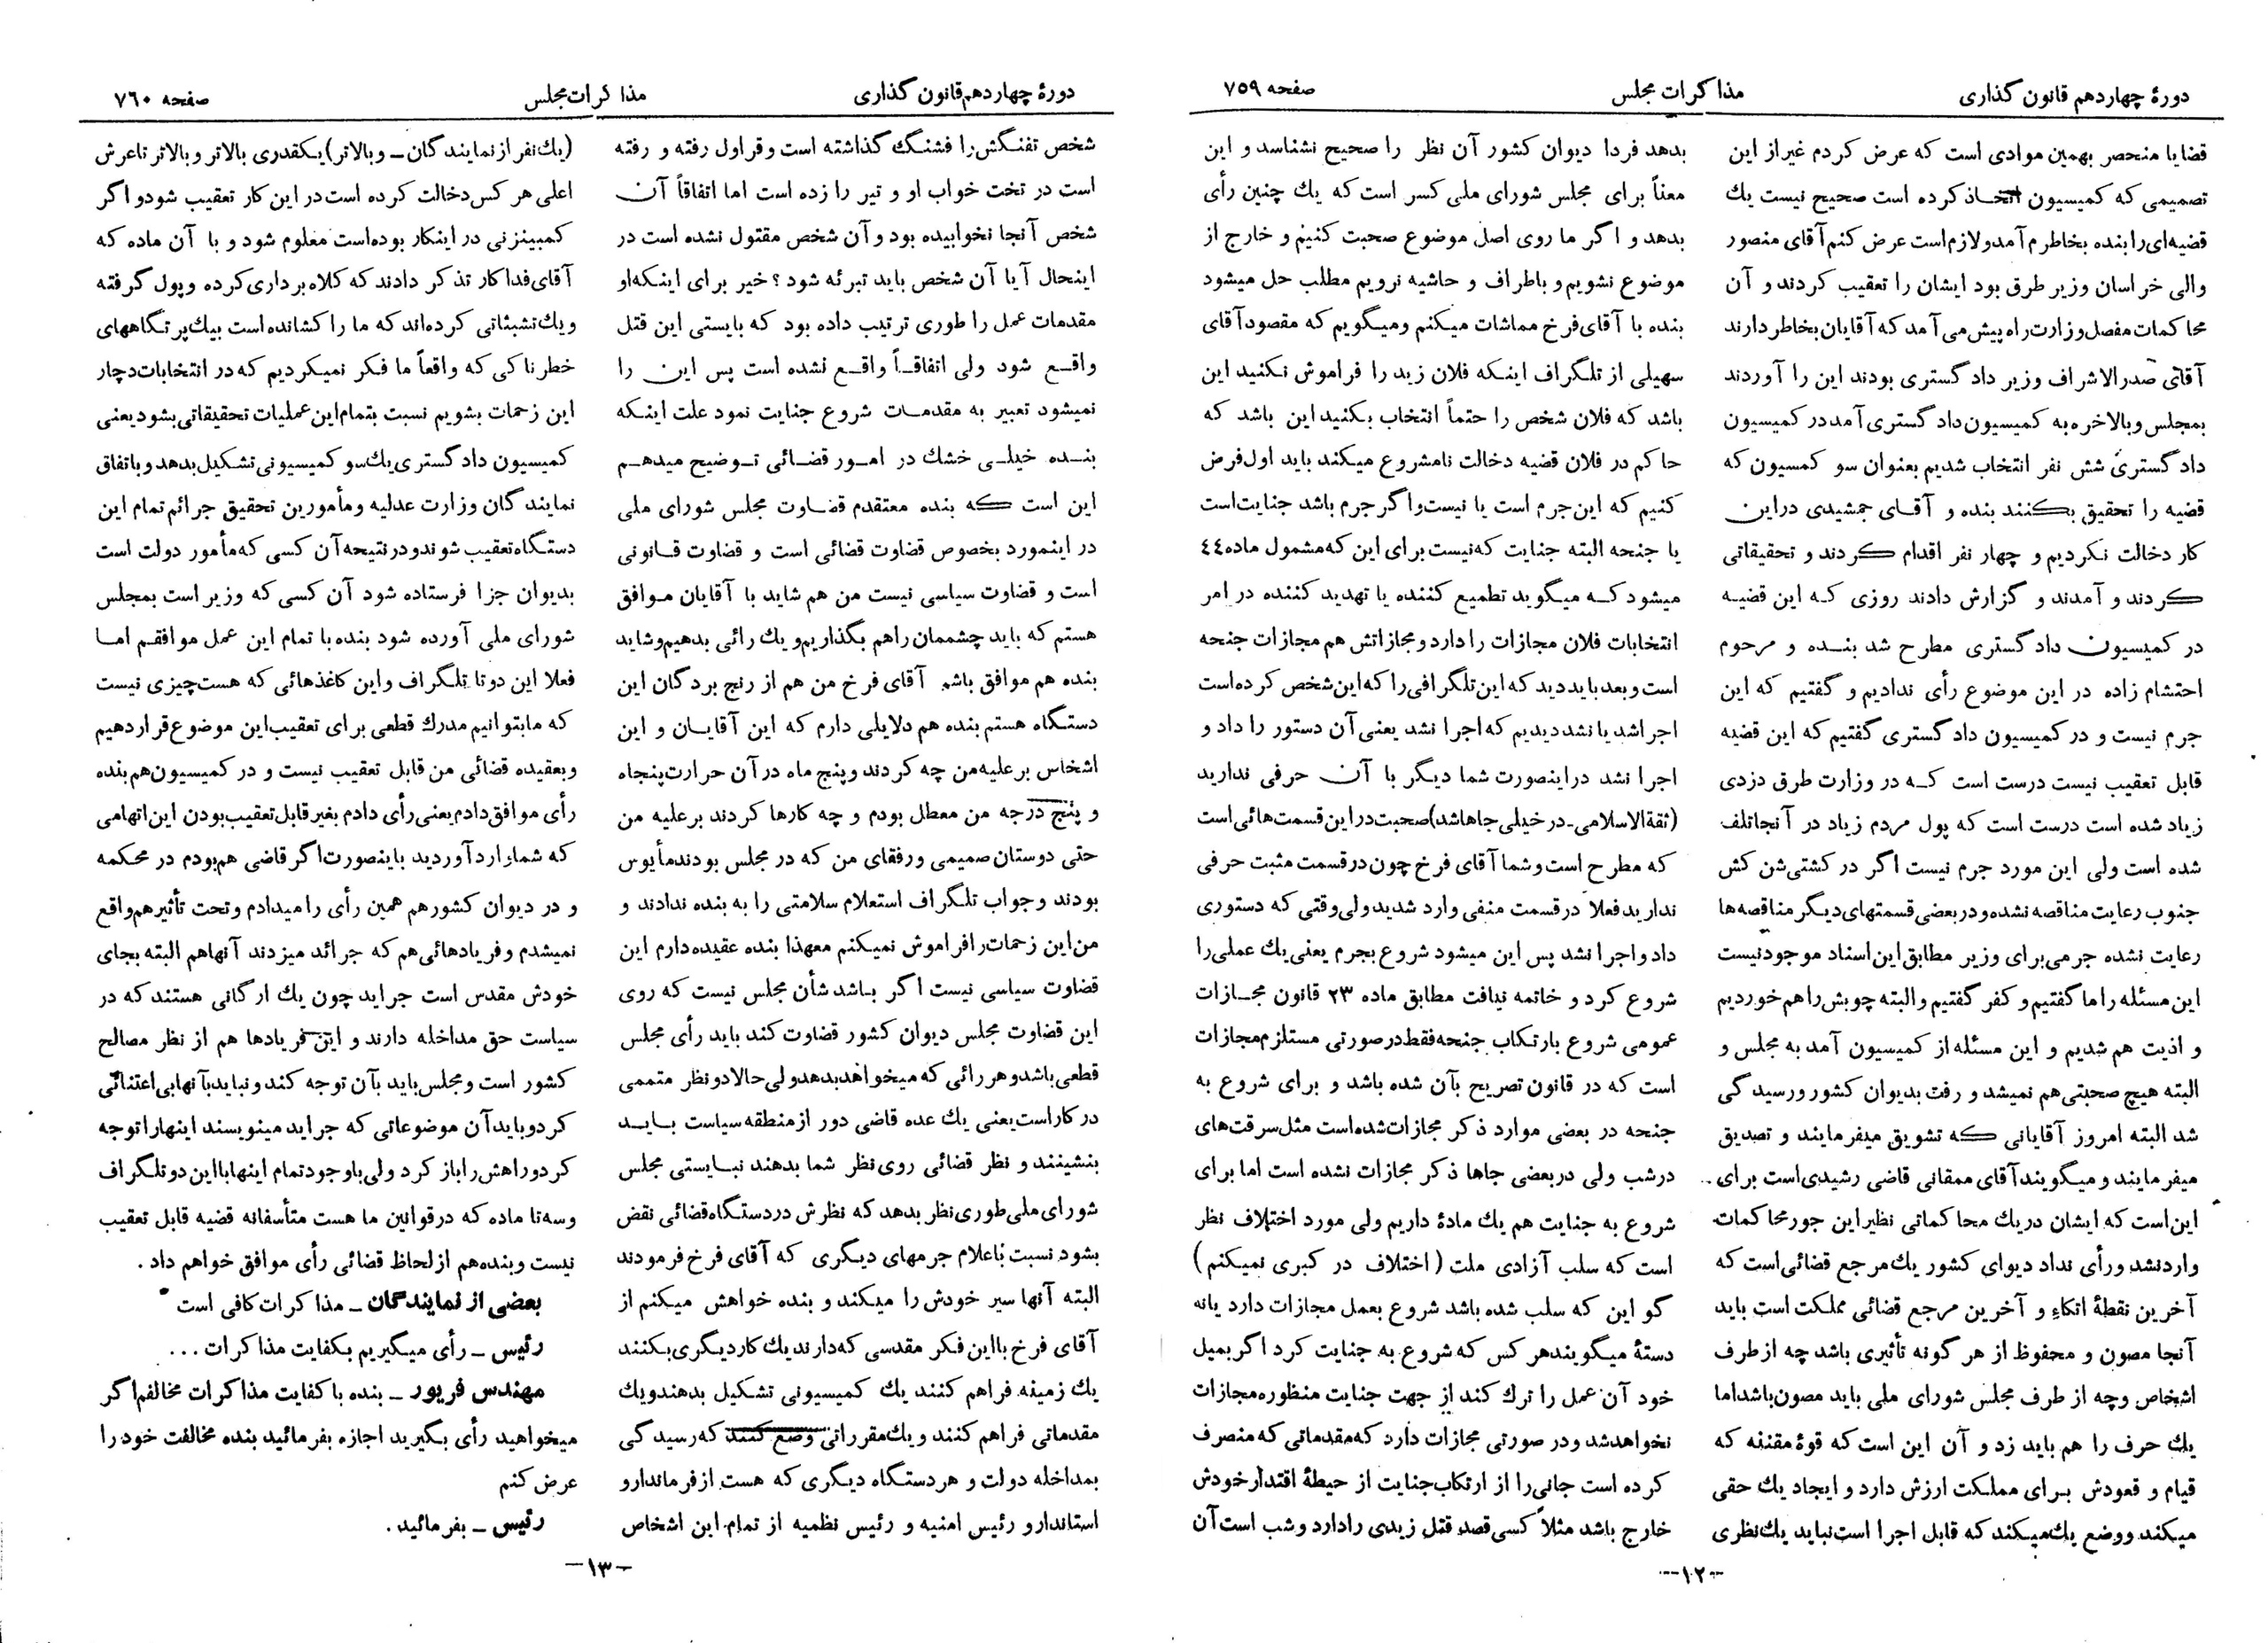 دورهٔ چهاردهم قانون گذاری
مذاکرات مجلس
صفحه ۷۵۹
قضایا منحصر بهمین موادی است که عرض کردم غیر از این
تصمیمی که کمیسیون اتخاذ کرده است صحیح نیست یك
قضیه‌ای را بنده بخاطرم آمد و لازم است عرض کنم آقای منصور
والی خراسان وزیر طرق بود ایشان را تعقیب کردند و آن
محاکمات مفصل وزارت راه پیش می‌آمد که آقایان بخاطر دارند
آقای صدرالاشراف وزیر دادگستری بودند این را آوردند
بمجلس و بالاخره به کمیسیون دادگستری آمد در کمیسیون
دادگستری شش نفر انتخاب شدیم بعنوان سو کمسیون که
قضیه را تحقیق بکنند بنده و آقای جمشیدی در این
کار دخالت نکردیم و چهار نفر اقدام کردند و تحقیقاتی
کردند و آمدند و گزارش دادند روزی که این قضیه
در کمیسیون دادگستری مطرح شد بنده و مرحوم
احتشام زاده در این موضوع رأی ندادیم و گفتیم که این
جرم نیست و در کمیسیون دادگستری گفتیم که این قضیه
قابل تعقیب نیست درست است که در وزارت طرق دزدی
زیاد شده است درست است که پول مردم زیاد در آنجا تلف
شده است ولی این مورد جرم نیست اگر در کشتی شن کش
جنوب رعایت مناقصه نشده و در بعضی قسمتهای دیگر مناقصه‌ها
رعایت نشده جرمی برای وزیر مطابق این اسناد موجود نیست
این مسئله را ما گفتیم و کفر گفتیم و البته چوبش را هم خوردیم
و اذیت هم شدیم و این مسئله از کمیسیون آمد به مجلس و
البته هیچ صحبتی هم نمیشد و رفت بدیوان کشور و رسیدگی
شد البته امروز آقایانی که تشویق میفرمایند و تصدیق
میفرمایند و میگویند آقای ممقانی قاضی رشیدی است برای
این است که ایشان در یك محاکماتی نظیر این جور محاکمات
وارد نشد و رأی نداد دیوای کشور یك مرجع قضائی است که
آخرین نقطهٔ اتکاء و آخرین مرجع قضائی مملکت است باید
آنجا مصون و محفوظ از هر گونه تأثیری باشد چه از طرف
اشخاص و چه از طرف مجلس شورای ملی باید مصون باشد اما
یك حرف را هم باید زد و آن این است که قوهٔ مقننه که
قیام و قعودش برای مملکت ارزش دارد و ایجاد یك حقی
میکند و وضع یك میکند که قابل اجرا است نباید یك نظری
بدهد فردا دیوان کشور آن نظر را صحیح نشناسد و این
معناً برای مجلس شورای ملی کسر است که یك چنین رأی
بدهد و اگر ما روی اصل موضوع صحبت کنیم و خارج از
موضوع نشویم و باطراف و حاشیه نرویم مطلب حل میشود
بنده با آقای فرخ مماشات میکنم و میگویم که مقصود آقای
سهیلی از تلگراف اینکه فلان زید را فراموش نکنید این
باشد که فلان شخص را حتماً انتخاب بکنید این باشد که
حاکم در فلان قضیه دخالت نامشروع میکند باید اول فرض
کنیم که این جرم است یا نیست و اگر جرم باشد جنایت است
یا جنحه البته جنایت که نیست برای این که مشمول ماده ٤٤
میشود که میگوید تطمیع کننده یا تهدید کننده در امر
انتخابات فلان مجازات را دارد و مجازاتش هم مجازات جنحه
است و بعد باید دید که این تلگرافی را که این شخص کرده است
اجرا شد یا نشد دیدیم که اجرا نشد یعنی آن دستور را داد و
اجرا نشد در اینصورت شما دیگر با آن حرفی ندارید
(ثقةالاسلامی- در خیلی جاها شد) صحبت در این قسمت هائی است
که مطرح است و شما آقای فرخ چون در قسمت مثبت حرفی
ندارید فعلا در قسمت منفی وارد شدید ولی وقتی که دستوری
داد و اجرا نشد پس این میشود شروع بجرم یعنی یك عملی را
شروع کرد و خاتمه نیافت مطابق ماده ۲۳ قانون مجازات
عمومی شروع بارتکاب جنحه فقط در صورتی مستلزم مجازات
است که در قانون تصریح بآن شده باشد و برای شروع به
جنحه در بعضی موارد ذکر مجازات شده است مثل سرقت های
در شب ولی در بعضی جاها ذکر مجازات نشده است اما برای
شروع به جنایت هم یك مادهٔ داریم ولی مورد اختلاف نظر
است که سلب آزادی ملت ( اختلاف در کبری نمیکنم )
گو این که سلب شده باشد شروع بعمل مجازات دارد یا نه
دستهٔ میگویند هر کس که شروع به جنایت کرد اگر بمیل
خود آن عمل را ترك کند از جهت جنایت منظوره مجازات
نخواهد شد و در صورتی مجازات دارد که مقدماتی که منصرف
کرده است جانی را از ارتکاب جنایت از حیطهٔ اقتدار خودش
خارج باشد مثلاً کسی قصد قتل زیدی را دارد و شب است آن
-۱۲-
دورهٔ چهاردهم قانون گذاری
مذاکرات مجلس
صفحه ۷۶۰
شخص تفنگش را فشنگ گذاشته است و قراول رفته و رفته
است در تخت خواب او و تیر را زده است اما اتفاقاً آن
شخص آنجا نخوابیده بود و آن شخص مقتول نشده است در
اینحال آیا آن شخص باید تبرئه شود ؟ خیر برای اینکه او
مقدمات عمل را طوری ترتیب داده بود که بایستی این قتل
واقع شود ولی اتفاقاً واقع نشده است پس این را
نمیشود تعبیر به مقدمات شروع جنایت نمود علت اینکه
بنده خیلی خشك در امور قضائی توضیح میدهم
این است که بنده معتقدم قضاوت مجلس شورای ملی
در اینمورد بخصوص قضاوت قضائی است و قضاوت قانونی
است و قضاوت سیاسی نیست من هم شاید با آقایان موافق
هستم که باید چشممان راهم بگذاریم و یك رائی بدهیم و شاید
بنده هم موافق باشم آقای فرخ من هم از رنج بردگان این
دستگاه هستم بنده هم دلایلی دارم که این آقایان و این
اشخاس بر علیه من چه کردند و پنج ماه در آن حرارت پنجاه
و پنج درجه من معطل بودم و چه کارها کردند بر علیه من
حتی دوستان صمیمی و رفقای من که در مجلس بودند مأیوس
بودند و جواب تلگراف استعلام سلامتی را به بنده ندادند و
من این زحمات را فراموش نمیکنم معهذا بنده عقیده دارم این
قضاوت سیاسی نیست اگر باشد شأن مجلس نیست که روی
این قضاوت مجلس دیوان کشور قضاوت کند باید رأی مجلس
قطعی باشد و هر رائی که میخواهد بدهد ولی حالا دو نظر متممی
در کار است یعنی یك عده قاضی دور از منطقه سیاست باید
بنشینند و نظر قضائی روی نظر شما بدهند نبایستی مجلس
شورای ملی طوری نظر بدهد که نظرش در دستگاه قضائی نقض
بشود نسبت باعلام جرمهای دیگری که آقای فرخ فرمودند
البته آنها سیر خودش را میکند و بنده خواهش میکنم از
آقای فرخ با این فکر مقدسی که دارند یك کار دیگری بکنند
یك زمینه فراهم کنند یك کمیسیونی تشکیل بدهند و یك
مقدماتی فراهم کنند و یك مقرراتی وضع کنند که رسیدگی
بمداخله دولت و هر دستگاه دیگری که هست از فرماندار و
استاندار و رئیس امنیه و رئیس نظمیه از تمام این اشخاص
(یك نفر از نمایندگان ــ و بالاتر) یکقدری بالاتر و بالاتر تا عرش
اعلی هر کس دخالت کرده است در این کار تعقیب شود و اگر
کمبینزنی در اینکار بوده است معلوم شود و با آن ماده که
آقای فداکار تذکر دادند که کلاه برداری کرده و پول گرفته
و یك تشبثاتی کرده‌اند که ما را کشانده است بیك پرتگاههای
خطرناکی که واقعاً ما فکر نمیکردیم که در انتخابات دچار
این زحمات بشویم نسبت بتمام این عملیات تحقیقاتی بشود یعنی
کمیسیون دادگستری یك سو کمیسیونی تشکیل بدهد و باتفاق
نمایندگان وزارت عدلیه و مأمورین تحقیق جرائم تمام این
دستگاه تعقیب شوند و در نتیحه آن کسی که مأمور دولت است
بدیوان جزا فرستاده شود آن کسی که وزیر است بمجلس
شورای ملی آورده شود بنده با تمام این عمل موافقم اما
فعلا این دو تا تلگراف و این کاغذهائی که هست چیزی نیست
که ما بتوانیم مدرك قطعی برای تعقیب این موضوع قرار دهیم
و بعقیده قضائی من قابل تعقیب نیست و در کمیسیون هم بنده
رأی موافق دادم یعنی رأی دادم بغیر قابل تعقیب بودن این اتهامی
که شما وارد آوردید باینصورت اگر قاضی هم بودم در محکمه
و در دیوان کشور هم همین رأی را میدادم و تحت تأثیر هم واقع
نمیشدم و فریادهائی هم که جرائد میزدند آنها هم البته بجای
خودش مقدس است جراید چون یك ارگانی هستند که در
سیاست حق مداخله دارند و این فریادها هم از نظر مصالح
کشور است و مجلس باید بآن توجه کند و نباید بآنها بی اعتنائی
کرد و باید آن موضوعاتی که جراید مینویسند اینها را توجه
کرد و راهش را باز کرد ولی با وجود تمام اینها با این دو تلگراف
و سه تا ماده که در قوانین ما هست متأسفانه قضیه قابل تعقیب
نیست و بنده هم از لحاظ قضائی رأی موافق خواهم داد .
بعضی از نمایندگان ــ مذاکرات کافی است
رئیس ــ رأی میگیریم بکفایت مذاکرات ...
مهندس فریور ــ بنده با کفایت مذاکرات مخالفم اگر
میخواهید رأی بگیرید اجازه بفرمائید بنده مخالفت خود را
عرض کنم
رئیس ــ بفرمائید.
-۱۳-